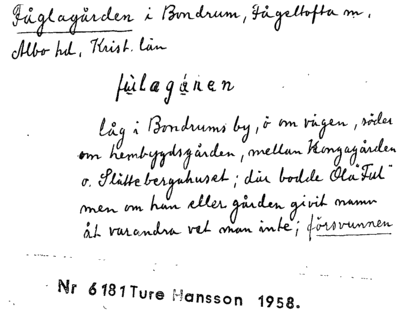 Fåglagården i Bondrum, Fågeltofta sn,
Albo hd, Krist. län
fùlagá̱ren
låg i Bondrums by, ö om vägen, söder
om hembygdsgården, mellan Kongagården
o. Slättebergahuset; där bodde Ola "Ful"
men om han eller gården givit namn
åt varandra vet man inte; försvunnen
Nr 6181 Ture Hansson 1958.